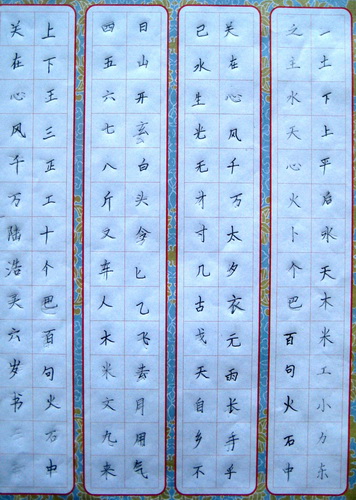 一土下上平后永天木米工小力东
之主水天心火卜个巴百句火石中
关在心风千万太夕衣元雨长手乎
己水生光无才寸几古戈天自乡不
日山开玄白头匕乙飞去月用气
四五六七八斤又车人木米文九来
上下王三正工十个巴百句火石中
关在心风千万陆浩六岁书